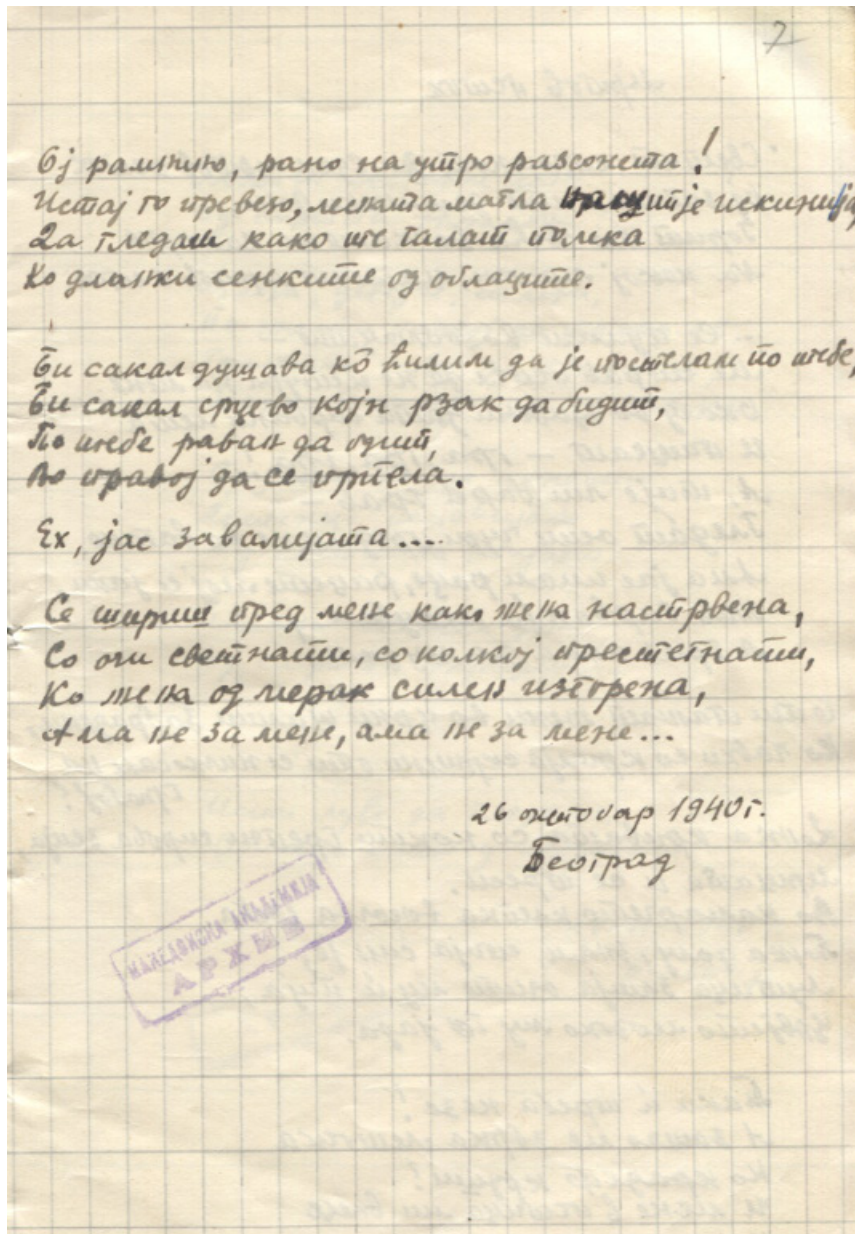 7
Ој рамнино, рано на утро разсонета!
Истај го превезо, леснита магла је искинија
За гледаш како те галат полка
Ко дланки сенките од облаците.
Би сакал душава ко ќилим да је постелам по тебе,
Би сакал срцево којн рзак да бидит,
По тебе раван да одит,
Во правој да се пртела.
Ех, јас завалијата....
Се шириш пред мене како жена настрвена,
Со очи светнати, со колкој престегнати,
Ко жена од мерак силен изгорена,
Ама не за мене, ама не за мене...
26 октовар 1940 г.
Београд
МАКЕДОНСКА АКАДЕМИЈА
АРХИВ